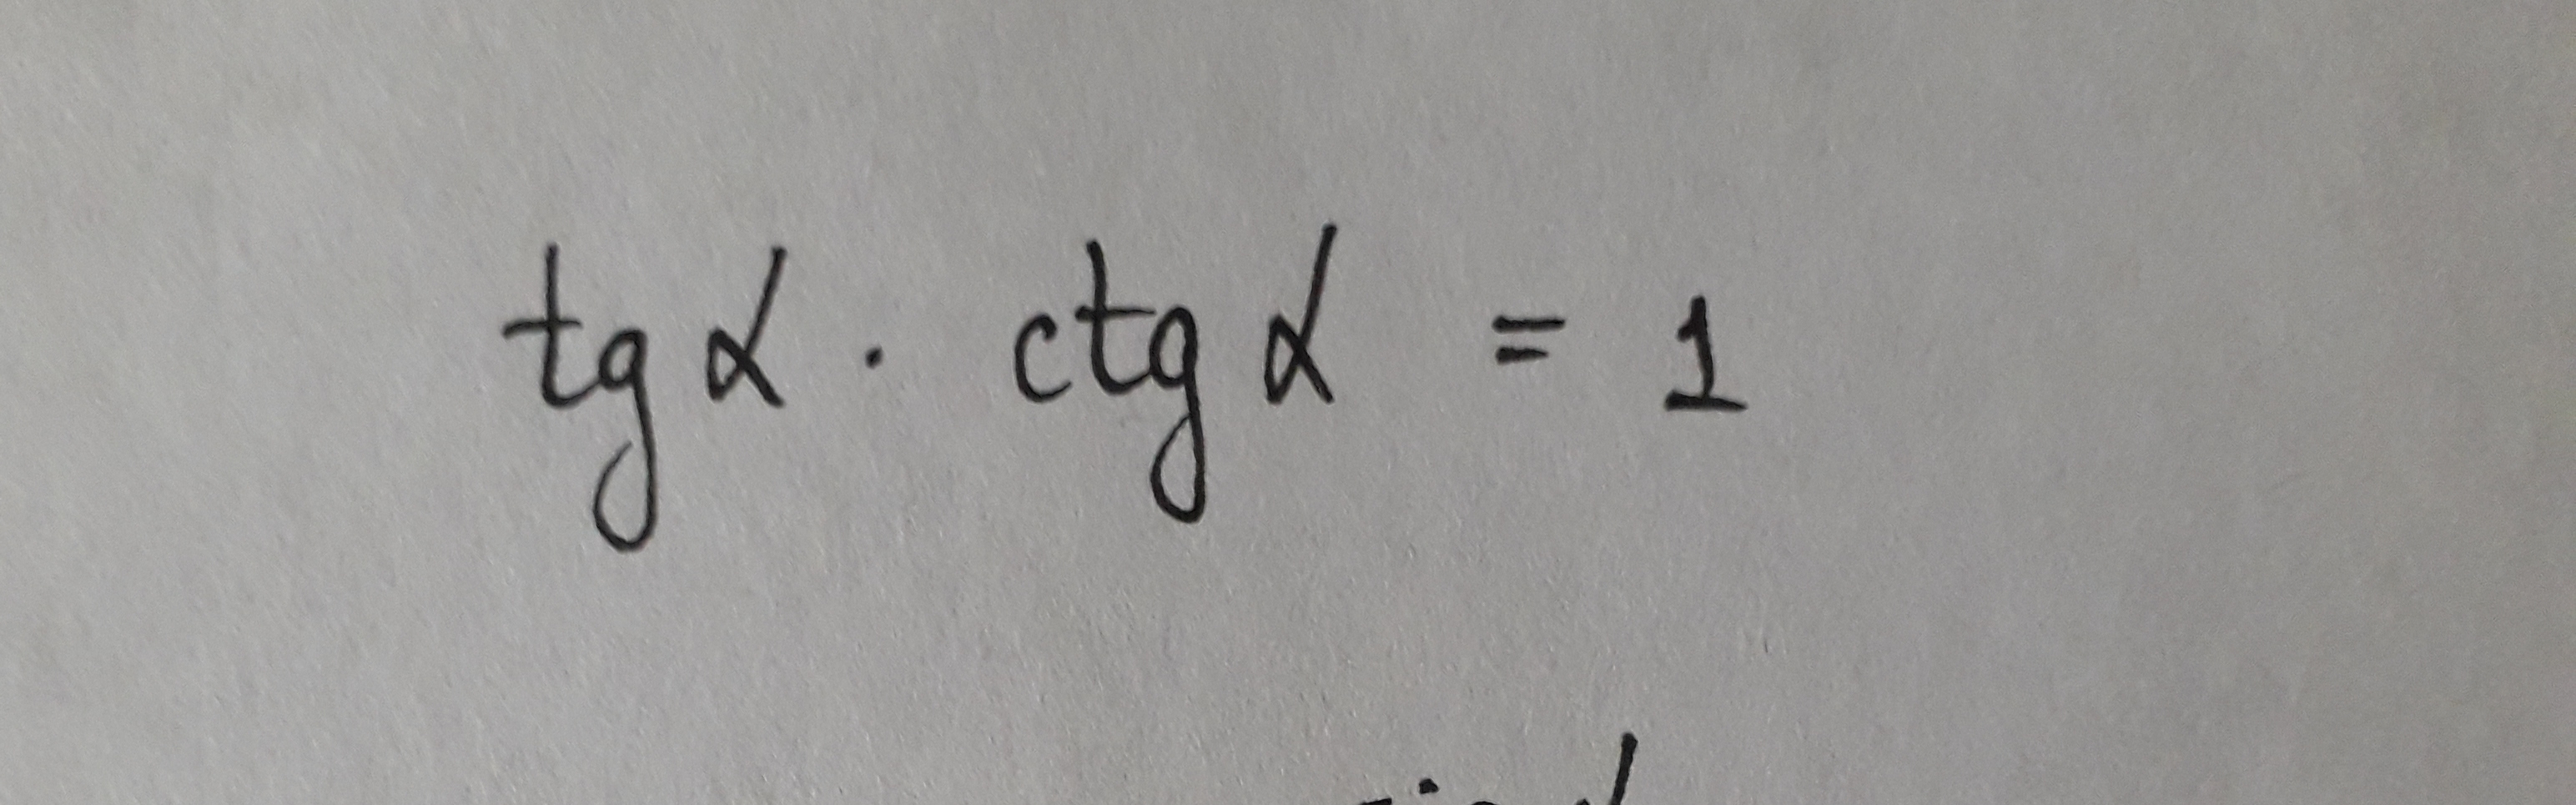 tg α · ctg α = 1